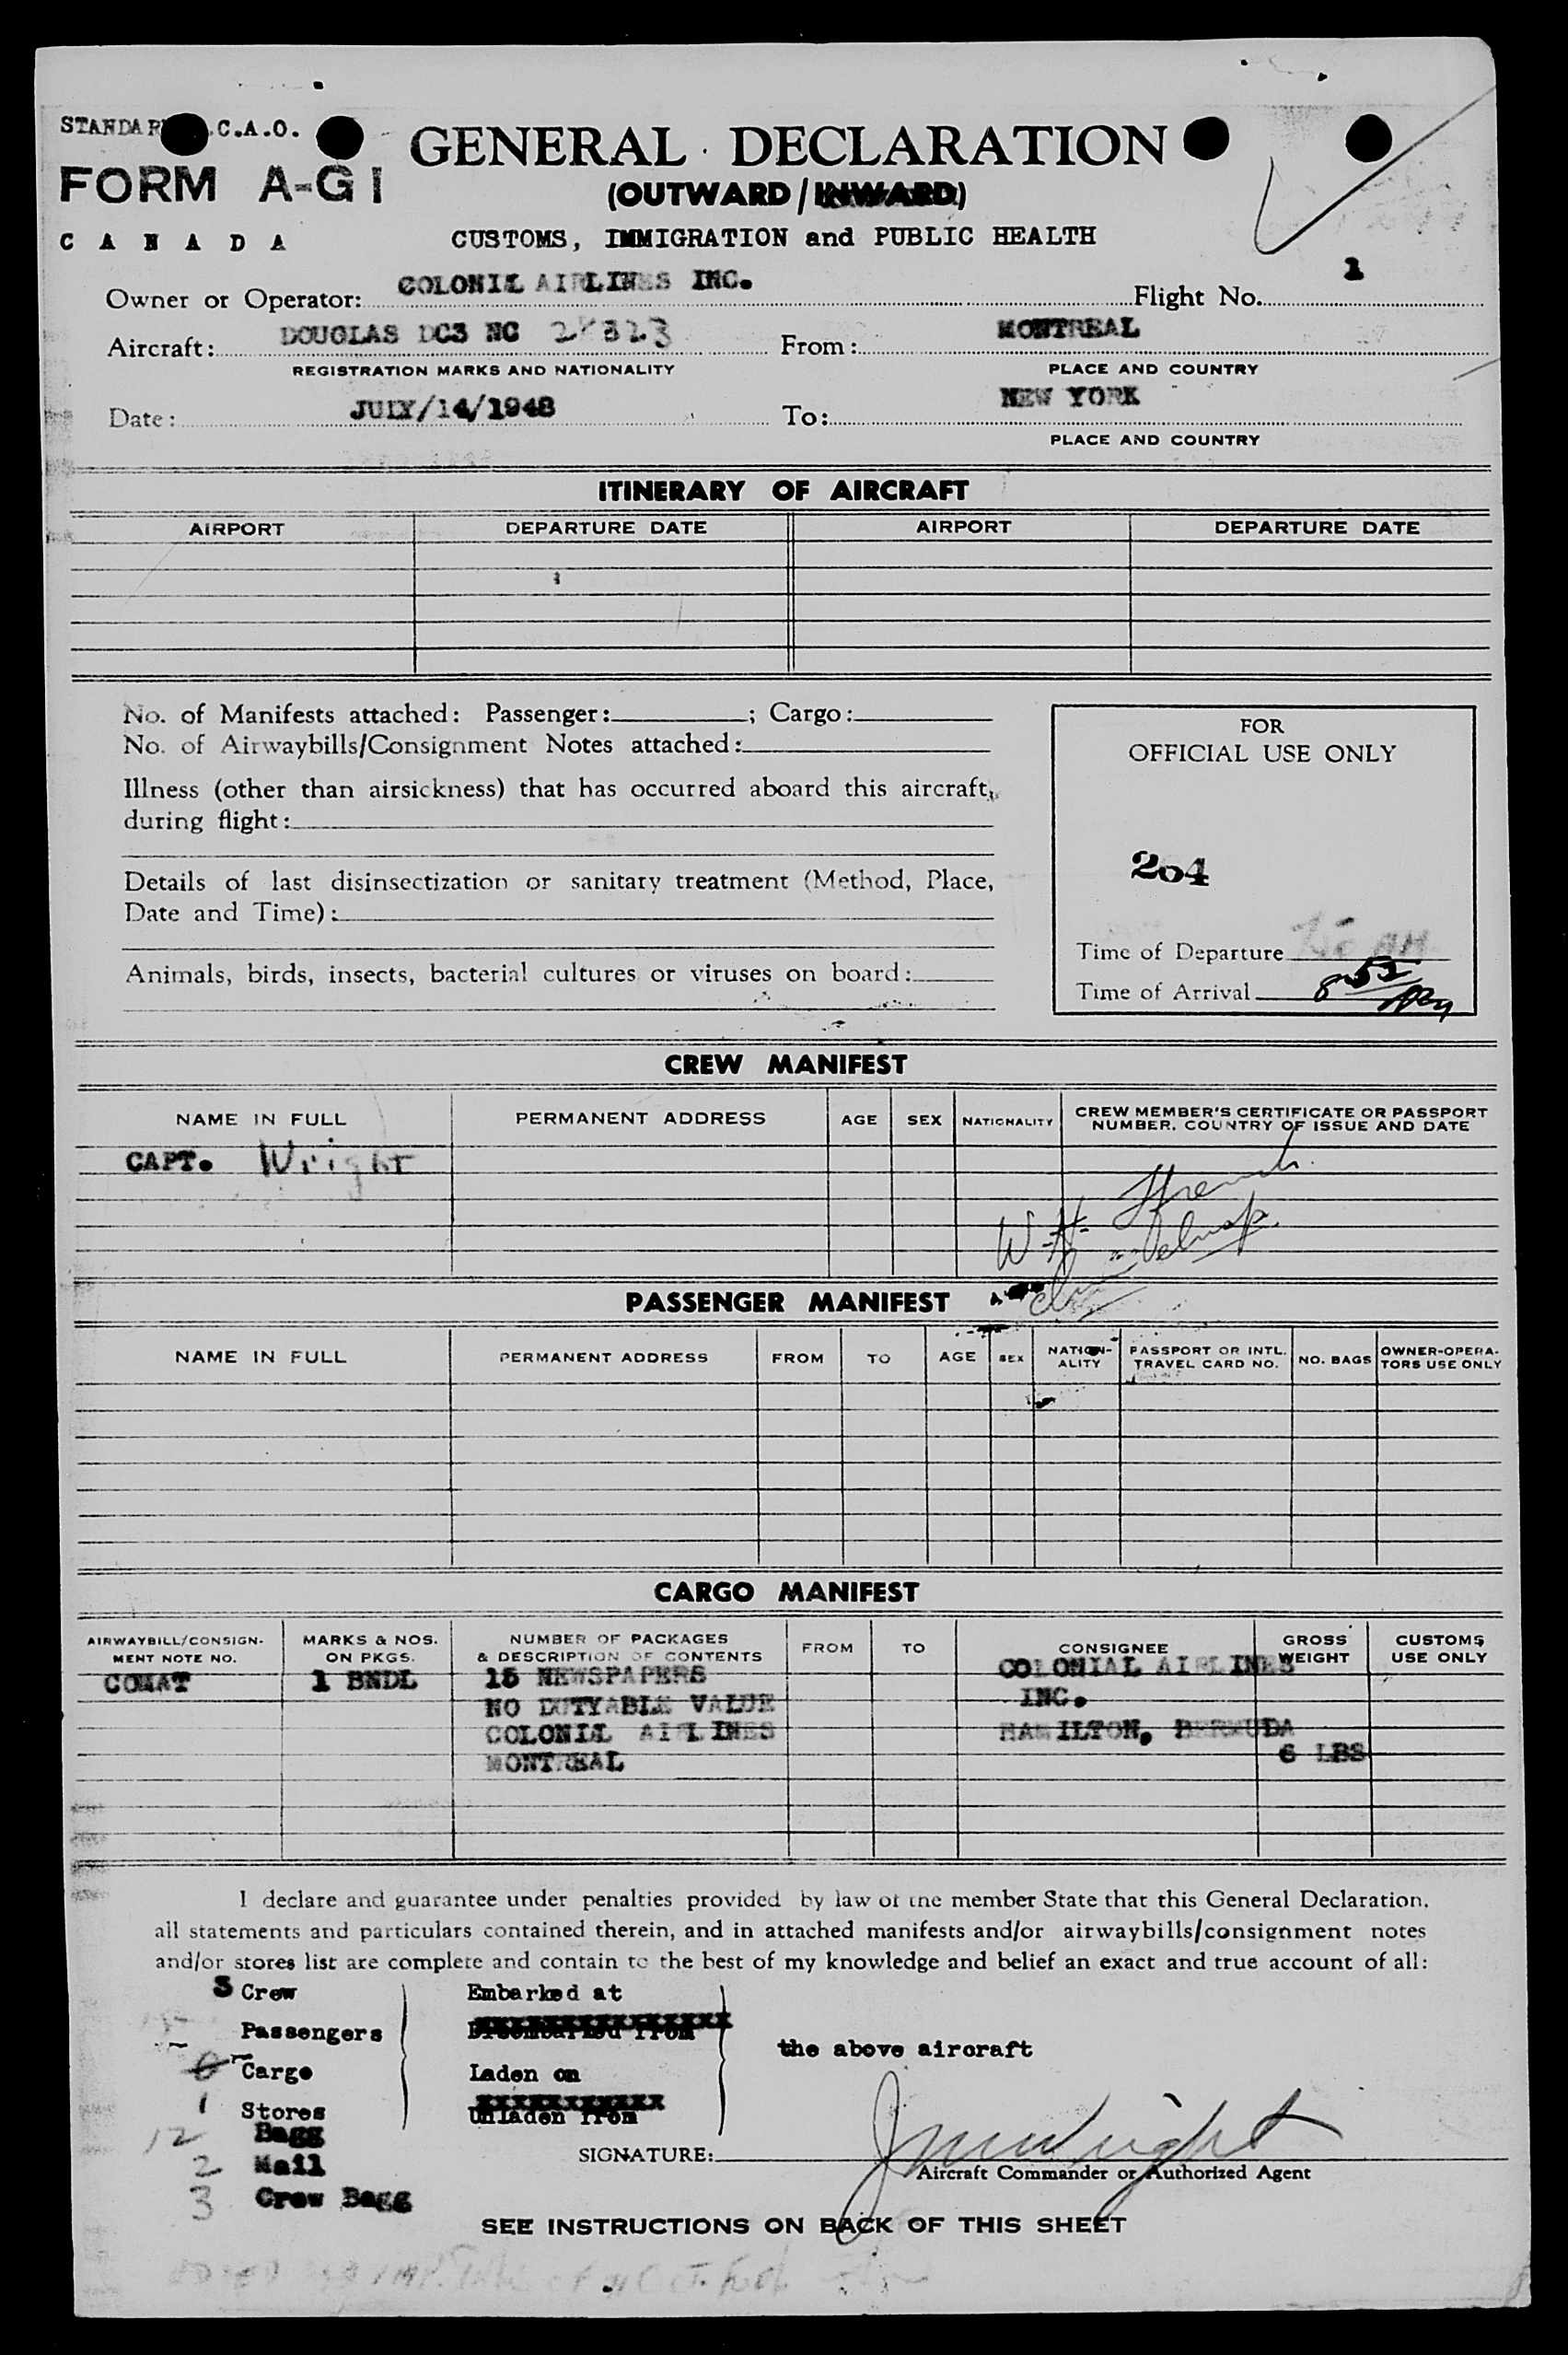 C.A.O.
GENERAL DECLARATION
FORM A-G1
(OUTWARD/INWARD)
CANADA
CUSTOMS, IMMIGRATION and PUBLIC HEALTH
Owner or Operator: COLONIL AIRLINES INC. Flight No. 1
Aircraft: DOUGLAS DC3 NC From: MONTREAL
REGISTRATION MARKS AND NATIONALITY PLACE AND COUNTRY
Date: JULY/14/1948 To: NEW YORK
PLACE AND COUNTRY
ITINERARY OF AIRCRAFT
AIRPORT DEPARTURE DATE AIRPORT DEPARTURE DATE
No. of Manifests attached: Passenger: ; Cargo:
No. of Airwaybills/Consignment Notes attached:
Illness (other than airsickness) that has occurred aboard this aircraft,
during flight:
Details of last disinsectization or sanitary treatment (Method, Place,
Date and Time):
Animals, birds, insects, bacterial cultures or viruses on board:
FOR
OFFICIAL USE ONLY
204
Time of Departure AM
Time of Arrival 8 55
CREW MANIFEST
NAME IN FULL PERMANENT ADDRESS AGE SEX NATIONALITY CREW MEMBER'S CERTIFICATE OR PASSPORT
NUMBER, COUNTRY OF ISSUE AND DATE
CAPT. Wright
W.H.
PASSENGER MANIFEST
NAME IN FULL PERMANENT ADDRESS FROM TO AGE SEX NATION-
ALITY PASSPORT OR INTL.
TRAVEL CARD NO. NO. BAGS OWNER-OPERA-
TORS USE ONLY
CARGO MANIFEST
AIRWAYBILL/CONSIGN-
MENT NOTE NO. MARKS & NOS.
ON PKGS. NUMBER OF PACKAGES
& DESCRIPTION OF CONTENTS FROM TO CONSIGNEE GROSS
WEIGHT CUSTOMS
USE ONLY
COMAT 1 BNDL 15 NEWSPAPERS COLONIAL AIRLINES
NO DUTYABLE VALUE INC.
COLONIL AIRLINES HAMILTON, BERMUDA
MONTREAL 6 LBS
I declare and guarantee under penalties provided by law of the member State that this General Declaration,
all statements and particulars contained therein, and in attached manifests and/or airwaybills/consignment notes
and/or stores list are complete and contain to the best of my knowledge and belief an exact and true account of all:
3 Crew Embarked at
Passengers Disembarked from
the above aircraft
Cargo Laden on
1 Stores Unladen from
12 Bagg
SIGNATURE:
2 Mail
Aircraft Commander or Authorized Agent
3 Crew Bagg
SEE INSTRUCTIONS ON BACK OF THIS SHEET